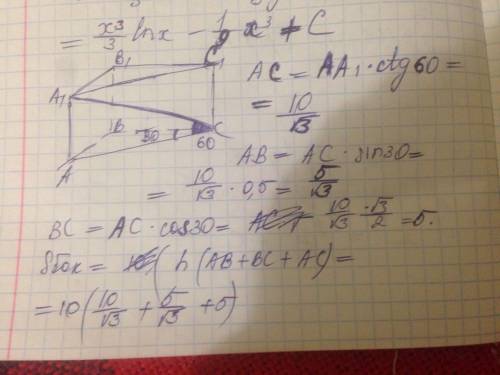 = x³/3 lnx - 1/9 x³ + C
B₁ C₁
A₁
B 30 C
60
A
AC = AA₁ · ctg 60 =
= 10/√3
AB = AC · sin30 =
= 10/√3 · 0,5 = 5/√3
BC = AC · cos30 = 10/√3 · √3/2 = 5.
Sбок = h (AB + BC + AC) =
= 10(10/√3 + 5/√3 + 5)